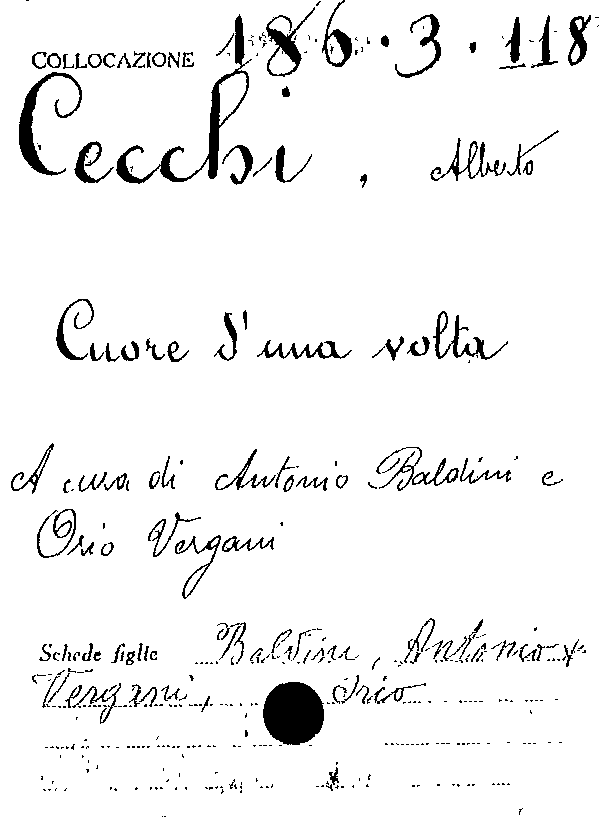 COLLOCAZIONE 186.3.118
Cecchi, Alberto
Cuore d'una volta
A cura di Antonio Baldini e
Orio Vergani
Schede figlie Baldini, Antonio *
Vergani, Orio